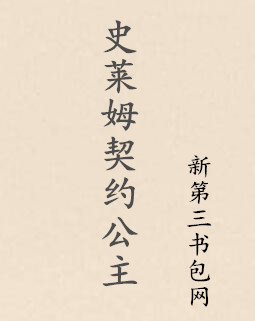 史莱姆契约公主
新第三书包网